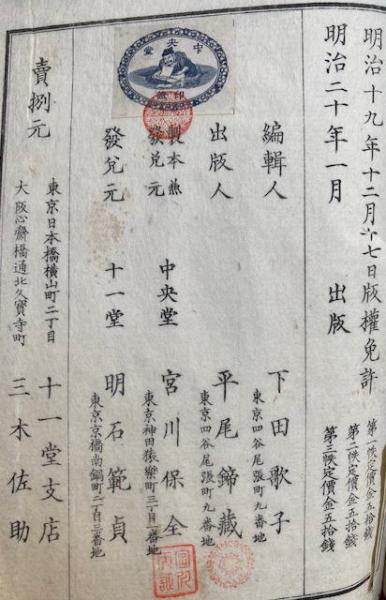 明治十九年十二月十七日版權免許
明治二十年一月 出版
第一帙定價金五拾錢
第二帙定價金五拾錢
第三帙定價金五拾錢
編輯人 下田歌子
東京四谷尾張町九番地
出版人 平尾鍗藏
東京四谷尾張町九番地
製本兼
發兌元 中央堂 宮川保全
東京神田猿樂町二丁目一番地
發兌元 十一堂 明石範貞
東京京橋南鍋町二丁目三番地
賣捌元
東京日本橋橫山町二丁目 十一堂支店
大阪心齋橋通北久寶寺町 三木佐助
中央堂